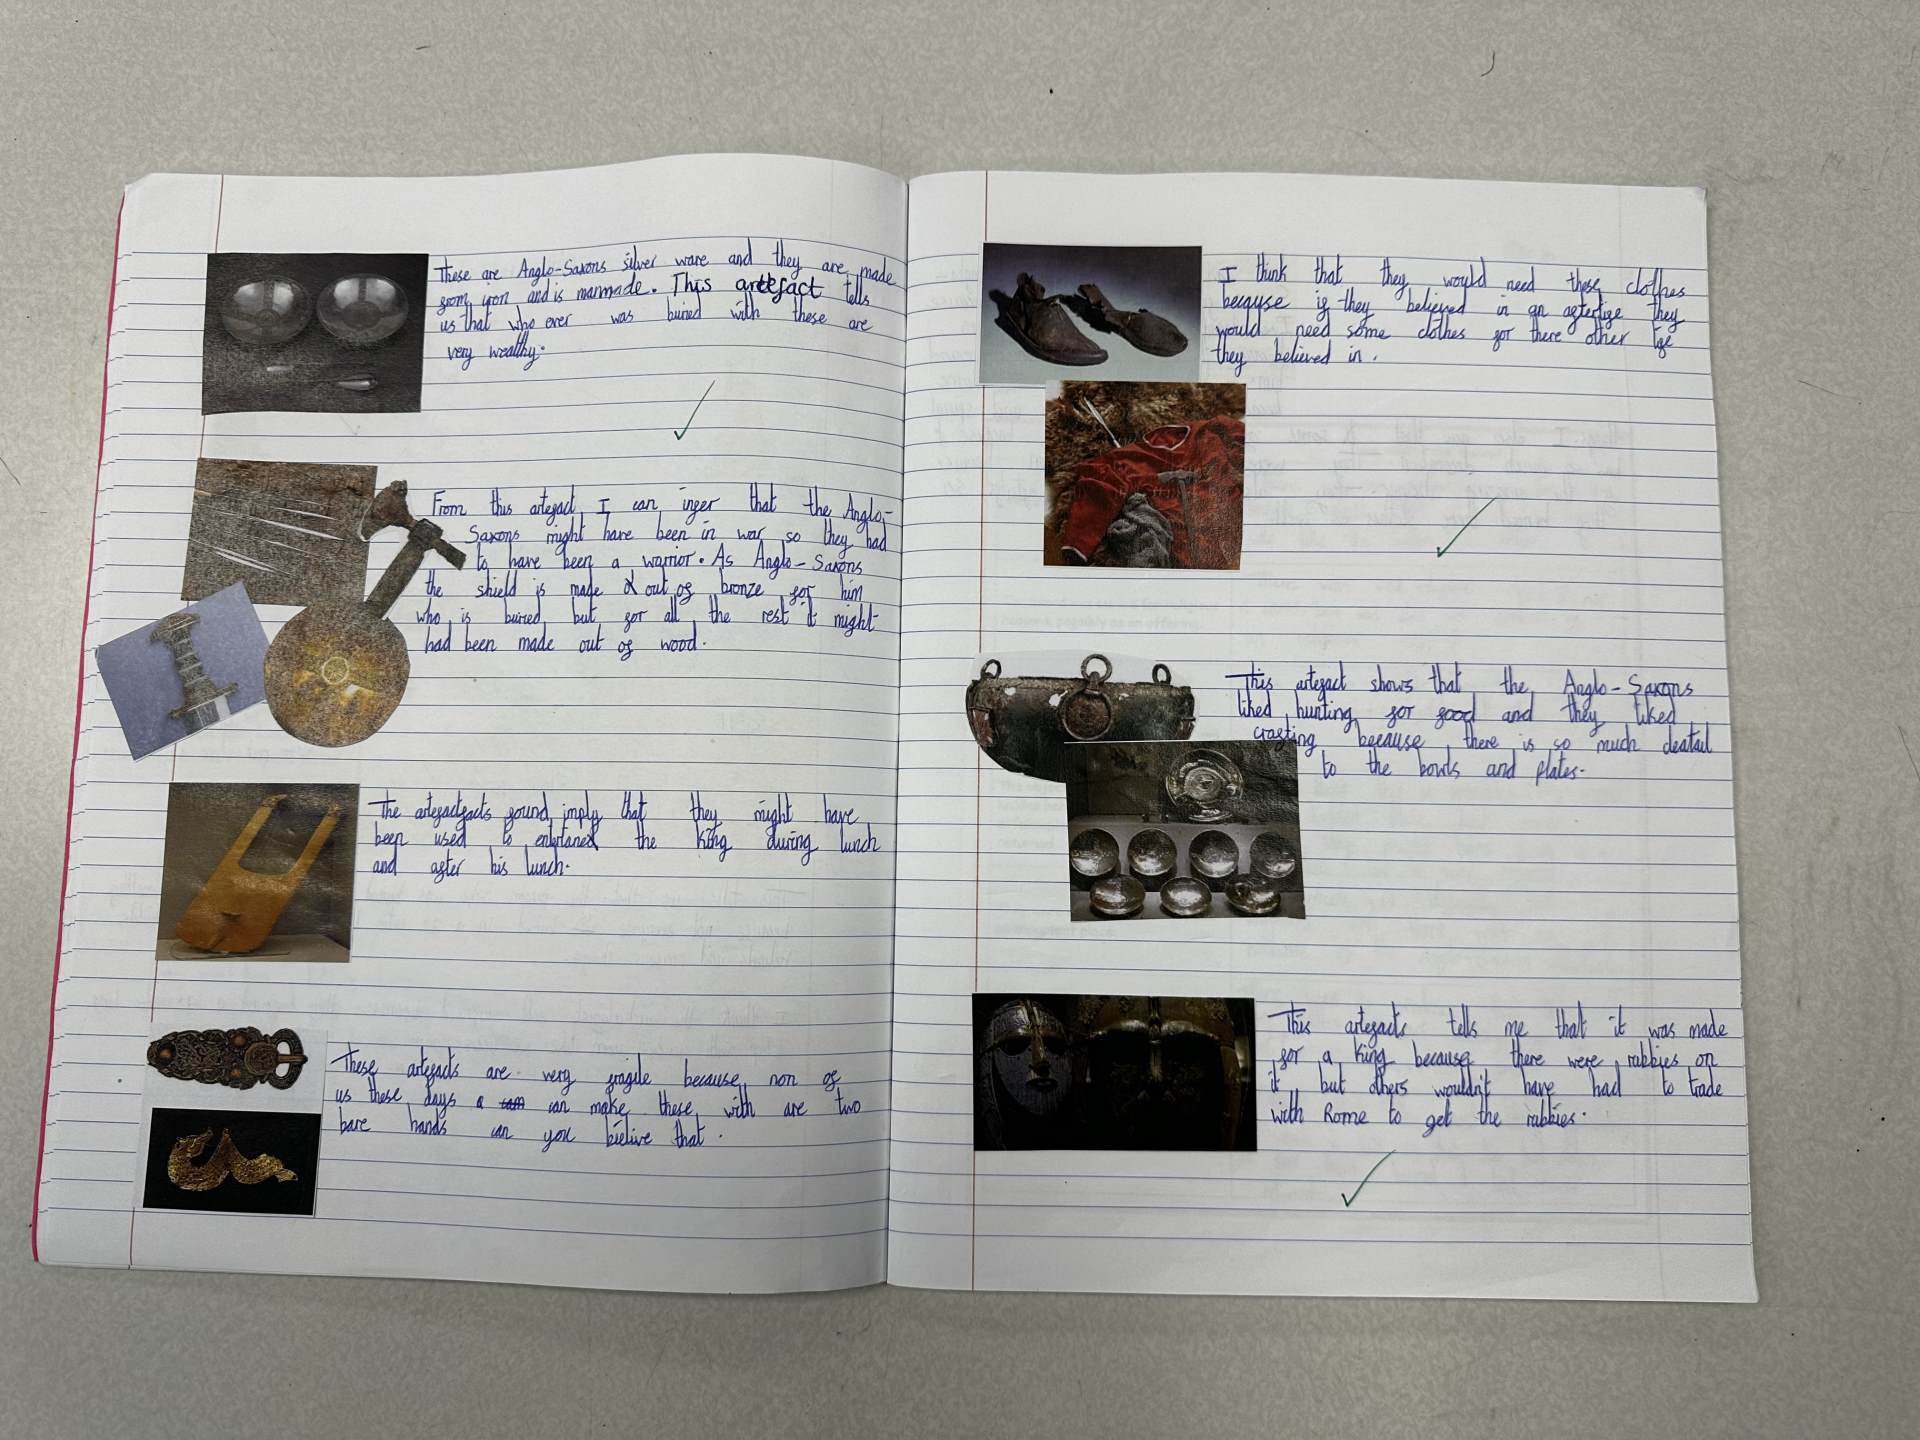 These are Anglo-Saxons silver ware and they are made
from iron and is manmade. This artefact tells
us that who ever was buried with these are
very wealthy.
From this artefact I can infer that the Anglo-
Saxons might have been in war so they had
to have been a warrior. As Anglo-Saxons
the shield is made out of bronze for him
who is buried but for all the rest it might
had been made out of wood.
The artefactfacts found imply that they might have
been used to entertaned the King during lunch
and after his lunch.
These artefacts are very fragile because non of
us these days can make these with are two
bare hands can you bielive that.
I think that they would need these clothes
because if they believed in an afterlife they
would need some clothes for there other life
they believed in.
This artefact shows that the Anglo-Saxons
liked hunting for food and they liked
crafting because there is so much deatail
to the bowls and plates.
This artefacts tells me that it was made
for a King because there were rubbies on
it but others wouldn't have had to trade
with Rome to get the rubbies.